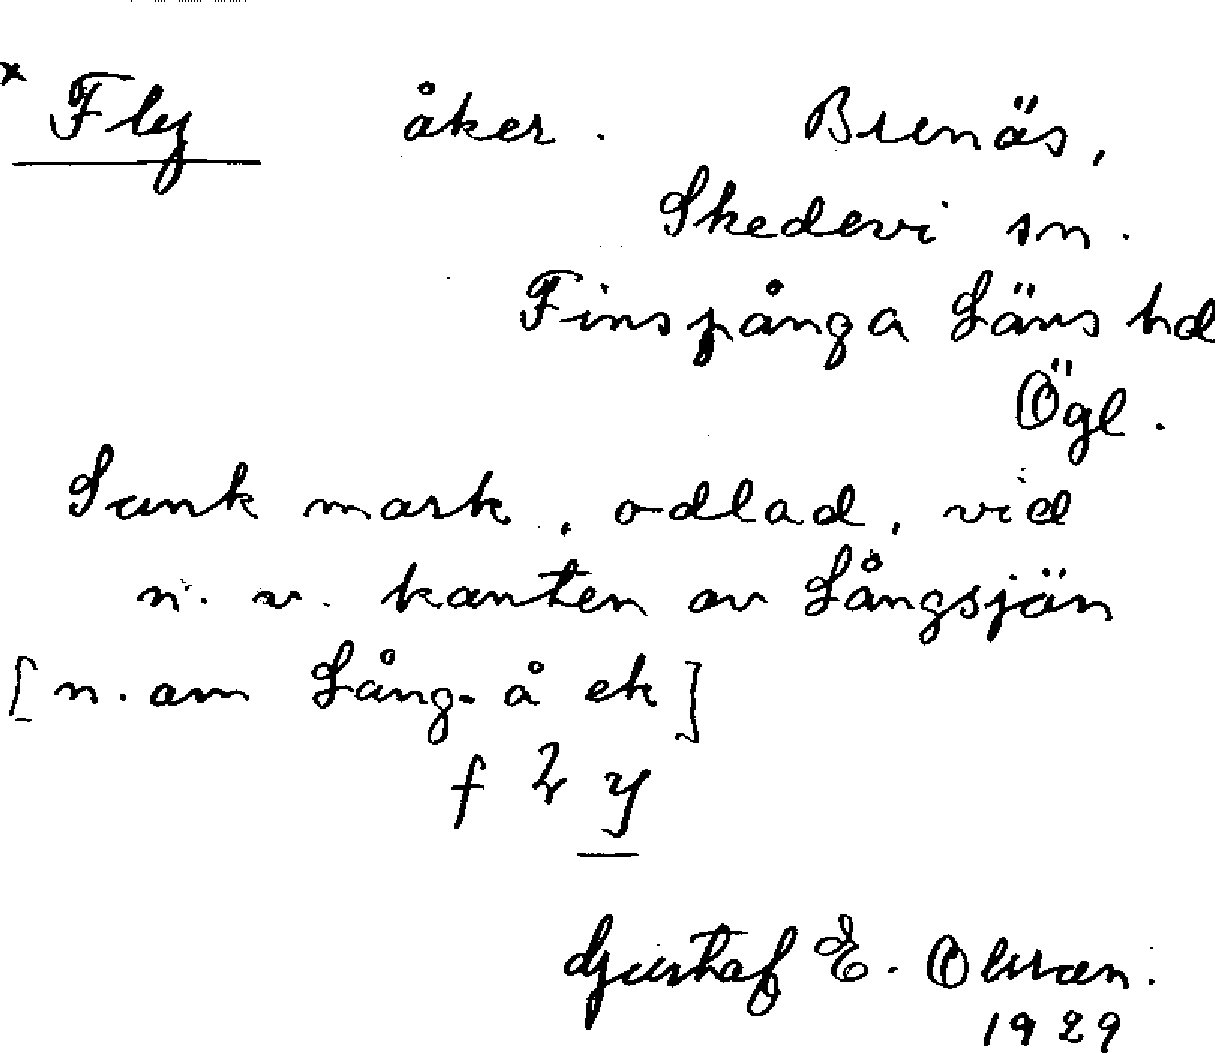 × Fly åker. Brenäs,
Skedevi sn.
Finspånga Läns hd
Ögl.
Sank mark, odlad, vid
n. v. kanten av Långsjön
[n. om Lång-å ek]
Gustaf E. Olsson.
1929